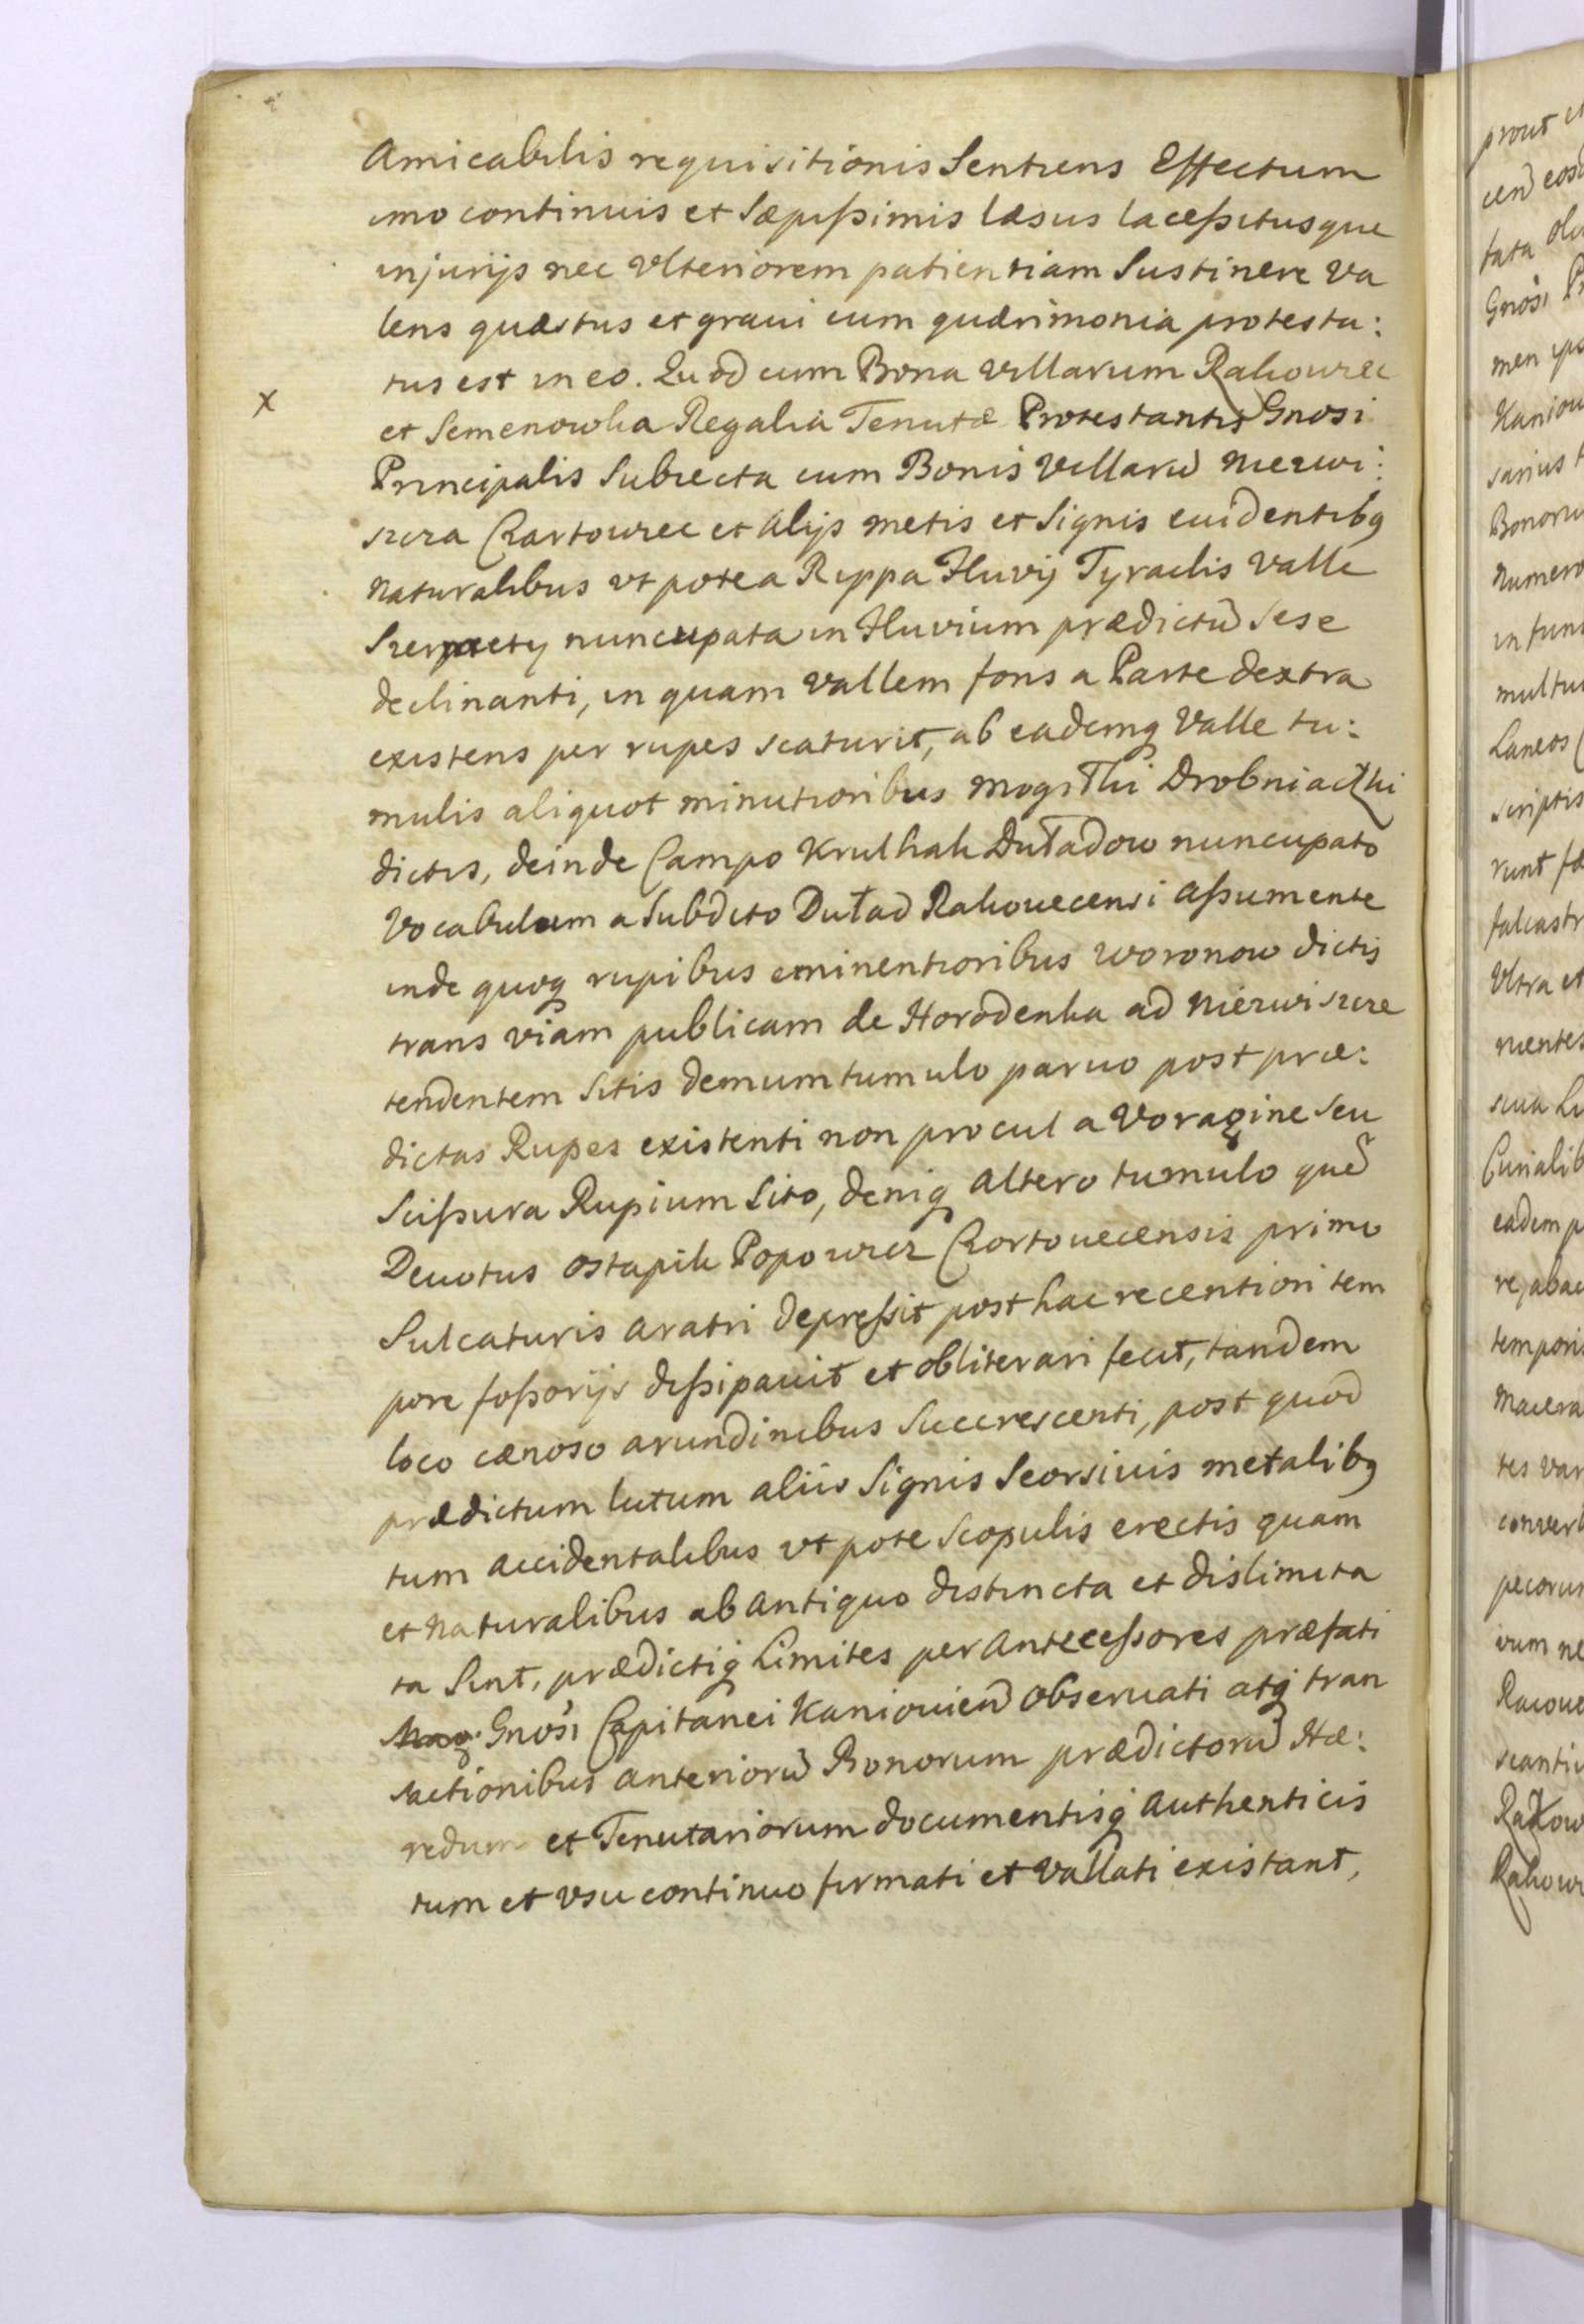 Amicabilis requisitionis Sentiens Effectum
imo continuis et Sæpißimis læsus laceßitusque
injurijs nec Ulteriorem patientiam Sustinere Va
lens quæstus et graui cum quærimonia protesta:
tus est in eo. Quod cum Bona Villarum Rakowiec
x
et Semenowka Regalia Tenutæ Protestantis Gnosi
Principalis Subiecta cum Bonis Villarũ Niezwi:
szcza Czartowiec et Alijs metis et Signis euidentibq
Naturalibus vt pote a Rippa Fluvij Tyraelis Valle
nuncupata in Fluvium prædictũ Sese
declinanti, in quam Vallem fons a Parte dextra
existens per rupes scaturit, ab eademq Valle tu:
mulis aliquot minutioribus Mogiłki Drobniaczki
dictis, deinde Campo Krulhak Duładow nuncupato
Vocabulum a Subdito Duład Rakouecensi Aßumente
inde quoq rupibus eminentioribus Woronow dictis
trans viam publicam de Horodenka ad Niezwiszcze
tendentem Sitis demum tumulo paruo post præ:
dictas Rupes existenti non procul a Voragine Seu
Scißura Rupium Sito, deniq Altero tumulo quẽ
Deuotus Ostapik Popowicz Czortouecensis primo
Sulcaturis Aratri depreßit post hac recentiori tem
pore foßorijs dißipauit et obliterari fecit, tandem
loco cænoso arundinibus Succrescenti, post quod
prædictum lutum aliis Signis Seorsiuis metalibq
tum Accidentalibus vt pote Scopulis erectis quam
et Naturalibus ab Antiquo distincta et dislimita
ta Sint, prædictiq Limites per Anteceßores præfati
Gnosi Capitanei Kaniouieñ Obseruati atq tran
sactionibus Anteriorũ Bonorum prædictorũ Hæ:
redum et Tenutariorum documentisq Authenticis
tum et vsu continuo firmati et Vallati existant,